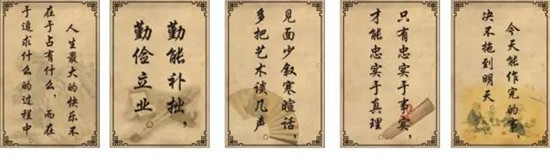 人生最大的快乐不
在于占有什么，而在
于追求什么的过程中
勤能补拙，
勤俭立业。
见面少叙寒暄话，
多把艺术谈几声。
只有忠实于事实，
才能忠实于真理
今天能作完的事，
决不拖到明天